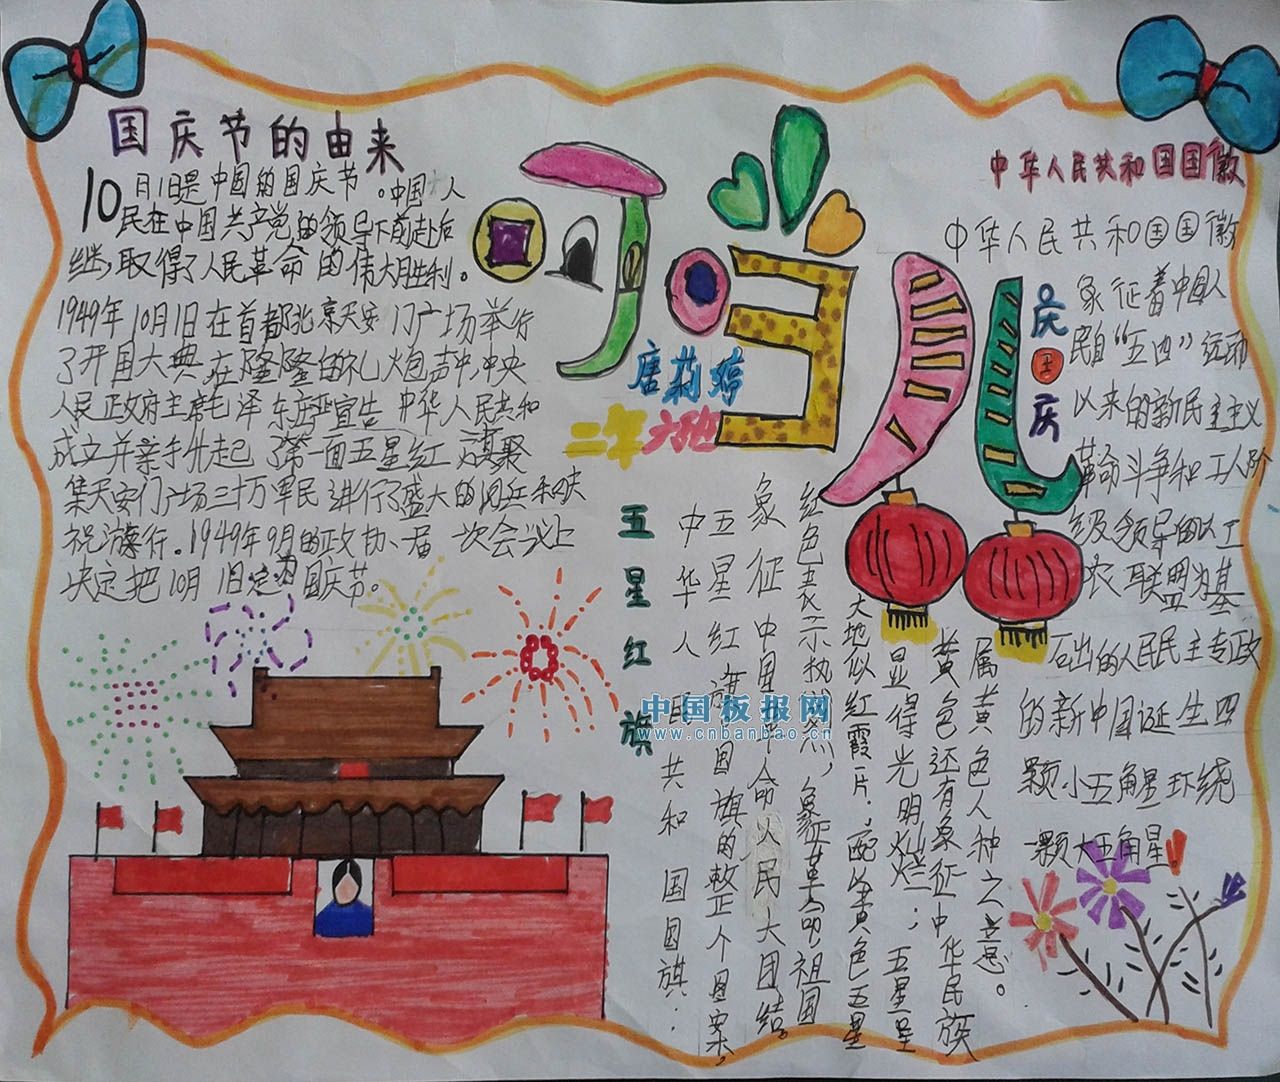 国庆节的由来
10月1日是中国的国庆节。中国人
民在中国共产党的领导下前赴后
继,取得了人民革命的伟大胜利。
1949年10月1日在首都北京天安门广场举行
了开国大典在隆隆的礼炮声中,中央
人民正政府主席毛泽东庄严宣告中华人民共和
成立并亲手升起了第一面五星红旗聚
集天安门广场三十万军民进行了盛大的阅兵和庆
祝游行。1949年9月的政协一届一次会议上
决定把10月1日定为国庆节。
唐莉婷
二年六班
庆
国
庆
五星红旗
中华人民共和国国旗:
五星红旗国旗的整个图案,
象征中国革命人民大团结。
红色表示热烈,象征革命,祖国
大地似红霞一片.配以黄色五星
显得光明灿烂;五星呈
黄色还有象征中华民族
属黄色人种之意。
中华人民共和国国徽
中华人民共和国国徽
象征着中国人
民自“五四”运动
以来的新民主主义
革命斗争和工人阶
级领导的以工
农联盟为基
石出的人民民主专政
的新中国诞生四
颗小五角星环绕
一颗大五角星!
中国板报网
www.cnbanbao.cn